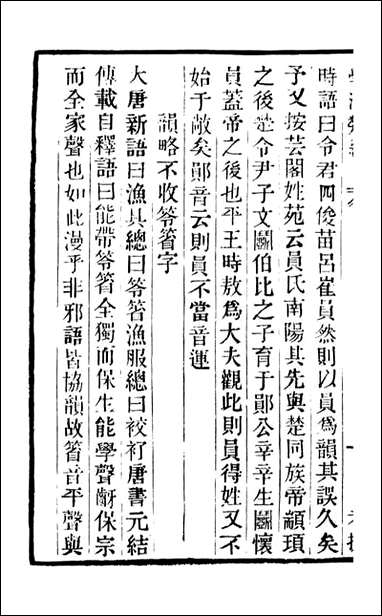 時語曰令君四俊苗呂崔員然則以員爲韻其誤久矣
予又按芸閣姓苑云員氏南陽其先與楚同族帝顓頊
之後楚令尹子文鬭伯比之子育于鄖公辛辛生鬭懷
員蓋帝之後也平王時敖爲大夫觀此則員得姓又不
始于敞矣鄖音云則員不當音運
韻略不收笭箵字
大唐新語曰漁具總曰笭箵漁服總曰䘨衧唐書元結
傳載自釋語曰能帶笭箵全獨而保生能學聲齖保宗
而全家聲也如此漫乎非邪語皆協韻故箵音平聲與